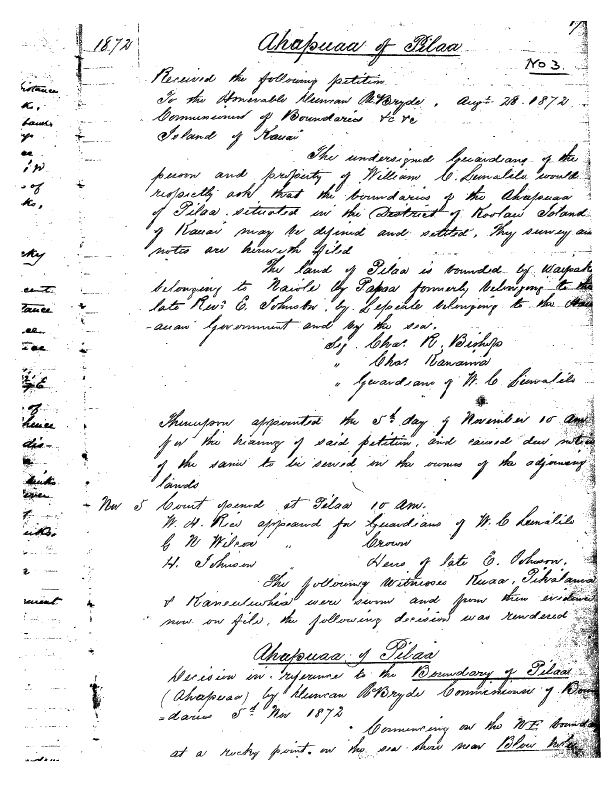 1872
Ahapuaa of Pilaa
No 3.
Received the following petition
To the Honorable Duncan McBryde, Augt 28. 1872
Commissioner of Boundaries &c &c
Island of Kauai
The undersigned Guardians of the
person and property of William C. Lunalilo would
respectly ask that the boundaries of the Ahapuaa
of Pilaa situated in the District of Koolau Island
of Kauai may be defined and settled. The survey and
notes are herewith filed
The land of Pilaa is bounded by Waipake
belonging to by Papaa formerly belonging to the
late Revd. E. Johnson, by Lepeuli belonging to the Haw
-aiian Government and by the sea.
Sig Chas. R. Bishop
" Chas. Kanaina
" Guardians of W. C. Lunalilo
Thereupon appointed the 5th day of November 10 am
for the hearing of said petition, and caused due notice
of the same to be served on the owners of the adjoining
lands
Nov 5 Court opened at Pilaa 10 Am.
W. H. Rice appeared for Guardians of W. C Lunalilo
G N Wilcox " Crown
H. Johnson Heirs of late E. Johnson.
The following witnesses
& were sworn and from their evidence
now on file, the following decision was rendered
Ahapuaa of Pilaa
Decision in reference to the Boundary of Pilaa
(Ahapuaa) by Duncan McBryde Commissioner of Boun
=daries 5th Nov 1872
Commencing on the NE boundary
at a rocky point on the sea shore near Blow hole